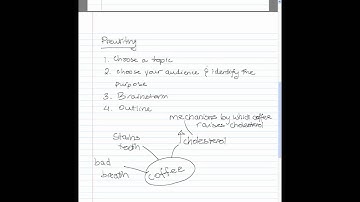 Prewriting
1. Choose a topic
2. choose your audience & identify the
purpose
3. Brainstorm
4. Outline
mechanisms by which coffee
raises cholesterol
Stains
teeth
cholesterol
bad
breath
coffee